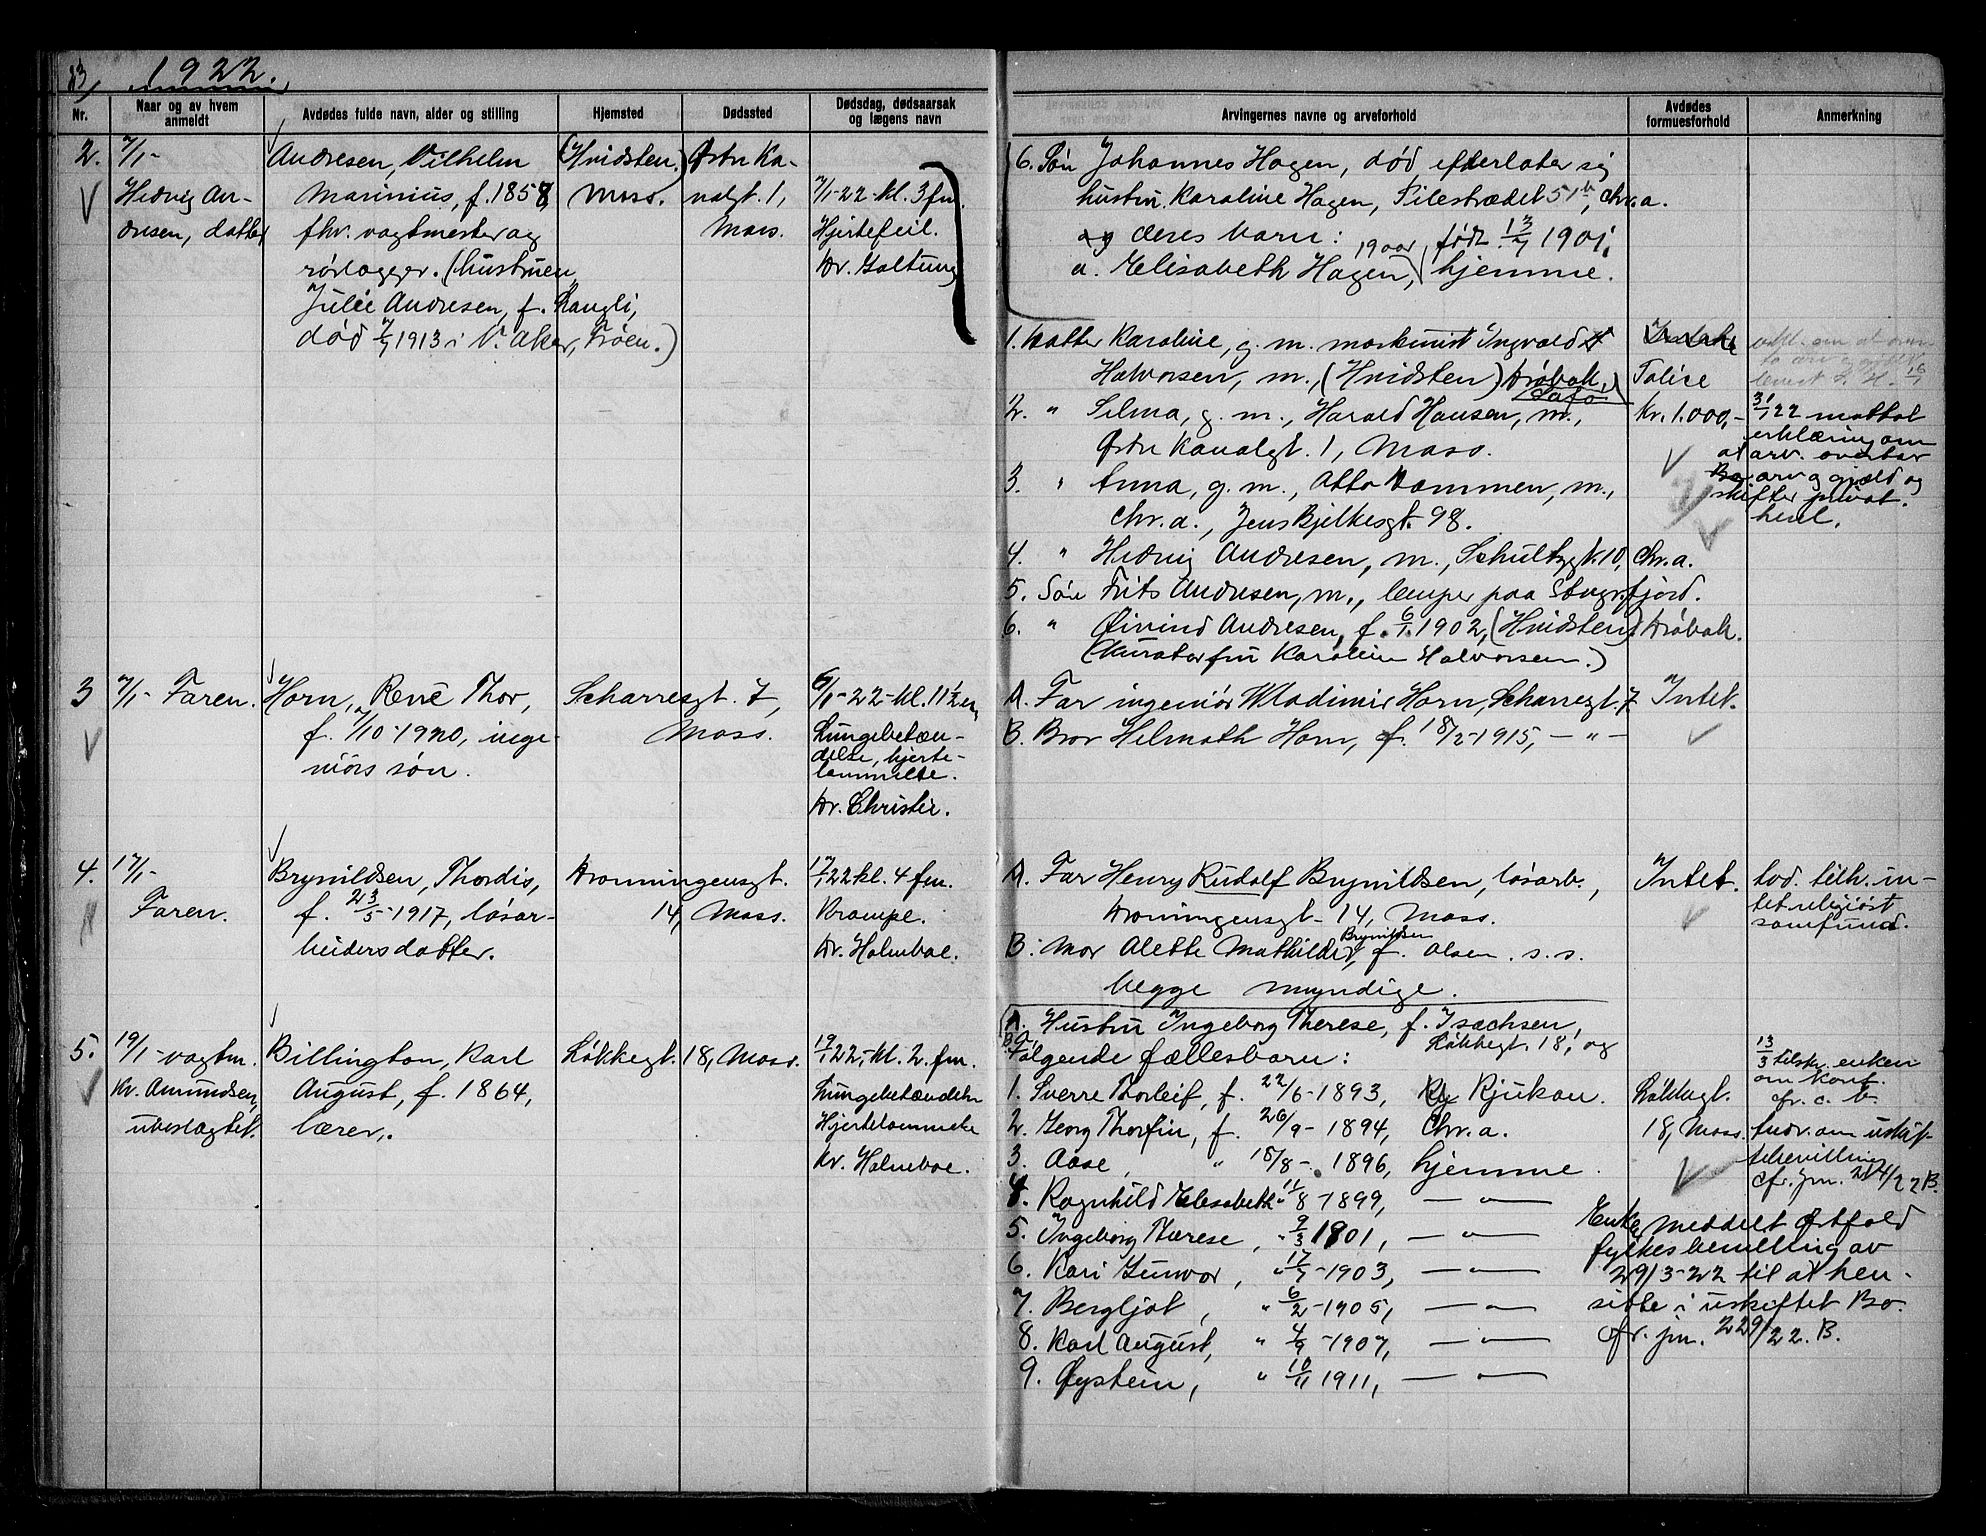 13/ 1922.
Nr.
Naar og av hvem anmeldt
Avdødes fulde navn, alder og stilling
Hjemsted
Dødssted
Dødsdag, dødsaarsak og lægens navn
Arvingernes navne og arveforhold
Avdødes formuesforhold
Anmerkning
6. Søn Johannes Hagen, død, efterlater sig
hustru Karoline Hagen, Pilestrædet 51b, Chr.a.
og deres barn:
a. Elisabeth Hagen, 19 aar, født 13/7 1901, hjemme.
2. 7/1-
Hedvig An-
dresen, datter
Andresen, Vilhelm
Marinius, f. 1858,
fhv. vagtmester og
rørlægger. (hustruen
Julie Andresen, f. Langli,
død 7/7 1913 i V. Aker, Frøen.)
(Hvidsten)
Moss.
Østre Ka-
nalgt. 1,
Moss.
7/1-22- kl. 3 fm.
Hjertefeil.
Dr. Galtung
1. Datter Karoline, g. m. maskinist Ingvald
Halvorsen, m., (Hvidsten) Drøbak,
2. " Selma, g. m., Harald Hansen, m.,
Østre Kanalgt. 1, Moss.
3. " Anna, g. m., Otto Dammen, m.,
Chr.a., Jens Bjelkesgt. 98.
4. " Hedvig Andresen, m., Schultzgt. 10, Chr.a.
5. Søn Frits Andresen, m., lemper paa Stavgsfjord.
6. " Øivind Andresen, f. 6/1. 1902, (Hvidsten) Drøbak.
(Kurator fru Karoline Halvorsen.)
Police
Kr. 1.000,-
31/1 22 mottat
erklæring om
at arv. overtar
arv og gjæld og
skifter privat.
henl.
3 7/1- Faren.
Horn, René Thor,
f. 1/10-1920, inge-
niørs søn.
Scharresgt. 7,
Moss.
6/1-22-kl. 11 1/2 em,
Lungebetæn-
delse, hjerte-
lammelse.
Dr. Christie.
A. Far ingeniør Wladimir Horn, Scharresgt. 7
B. Bror Helmuth Horn, f. 18/2-1915, — " —
Intet.
4. 17/1-
Faren.
Brynildsen, Thordis,
f. 23/5-1917, løsar-
beidersdatter.
Dronningensgt.
14, Moss.
17/1 22 kl. 4 fm.
Krampe.
Dr. Holmboe.
A. Far Henry Rudolf Brynildsen, løsarb.,
Dronningensgt. 14, Moss.
B. Mor Alette Mathilde Brynildsen, f. Olsen. s. s.
begge myndige.
Intet.
tilh. in-
tet religiøst
samfund.
5. 19/1- vagtm.
Kr. Amundsen,
ubeslægtet.
Billington, Karl
August, f. 1864,
lærer.
Løkkegt. 18, Moss.
19/1 22,- kl. 2 fm.
Lungebetændelse
Hjertelammelse
Dr. Holmboe.
A. Hustru Ingeborg Therese, f. Isachsen,
Løkkegt. 18, og
B. Følgende fællesbarn:
1. Sverre Thorleif, f. 22/6-1893, Rjukan.
2. Georg Thorfin, f. 26/9-1894, Chr.a.
3. Aase, " 18/8-1896, hjemme.
4. Ragnhild Elisabeth " 11/8-1899, — " —
5. Ingeborg Therese, " 9/3 1901, — " —
6. Kari Gunvor, " 17/7-1903, — " —
7. Bergljot, " 6/2-1905, — " —
8. Karl August, " 4/9-1907, — " —
9. Øystein, " 10/11 1911, — " —
Løkkegt.
18, Moss.
13/3 tilskr. enken
om kont.
cfr. c. b.
Andr. om uskif-
tebevilling
cfr. jnr. 214/22 B.
Enke meddelt Østfold
fylkes bevilling av
29/3-22 til at hen-
sitte i uskiftet Bo.
cfr. jnr. 229/22. B.